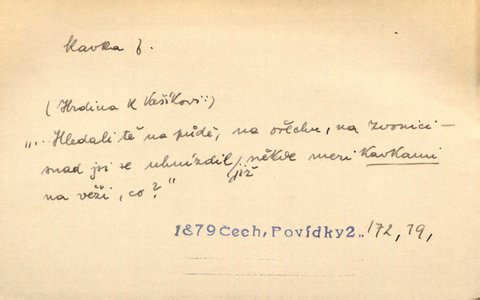 kavka f.
(Hrdina k Vašíkovi:)
„.. Hledali tě na půdě, na ořechu, na zvonici —
snad jsi se uhnízdil již někde mezi kavkami
na věži, co?"
1879 Čech, Povídky 2., 172, 79,